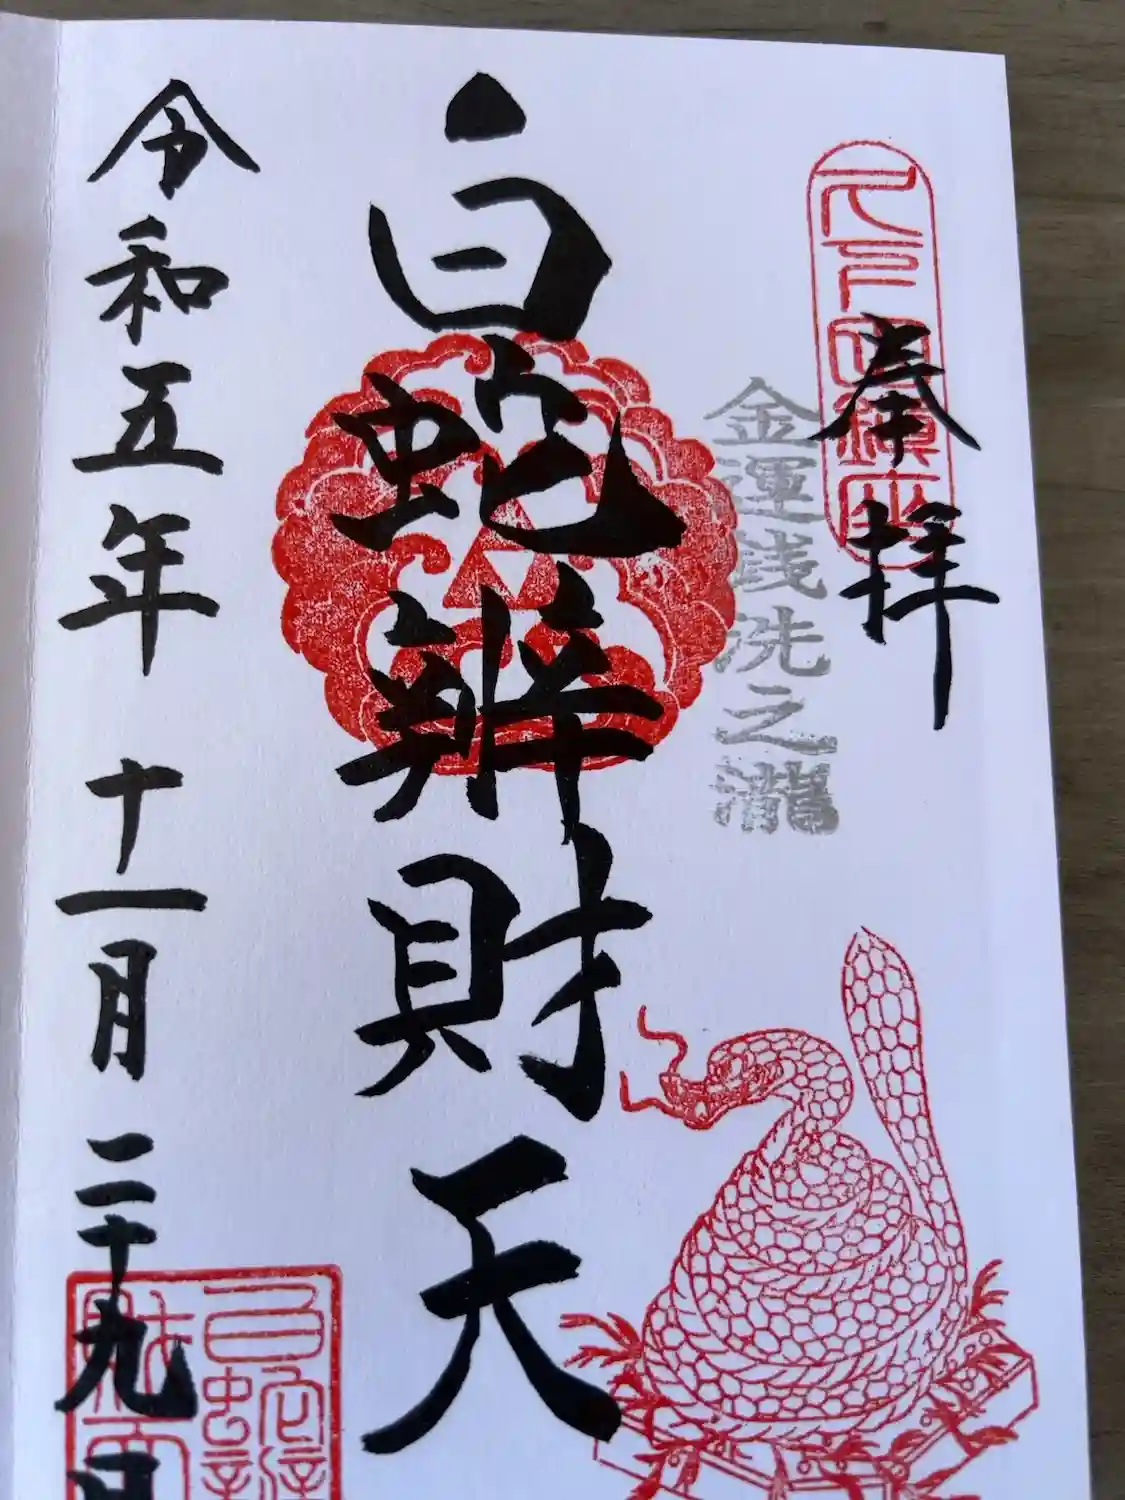 奉拝
金運銭洗之瀧
白蛇辨財天
令和五年 十一月 二十九日